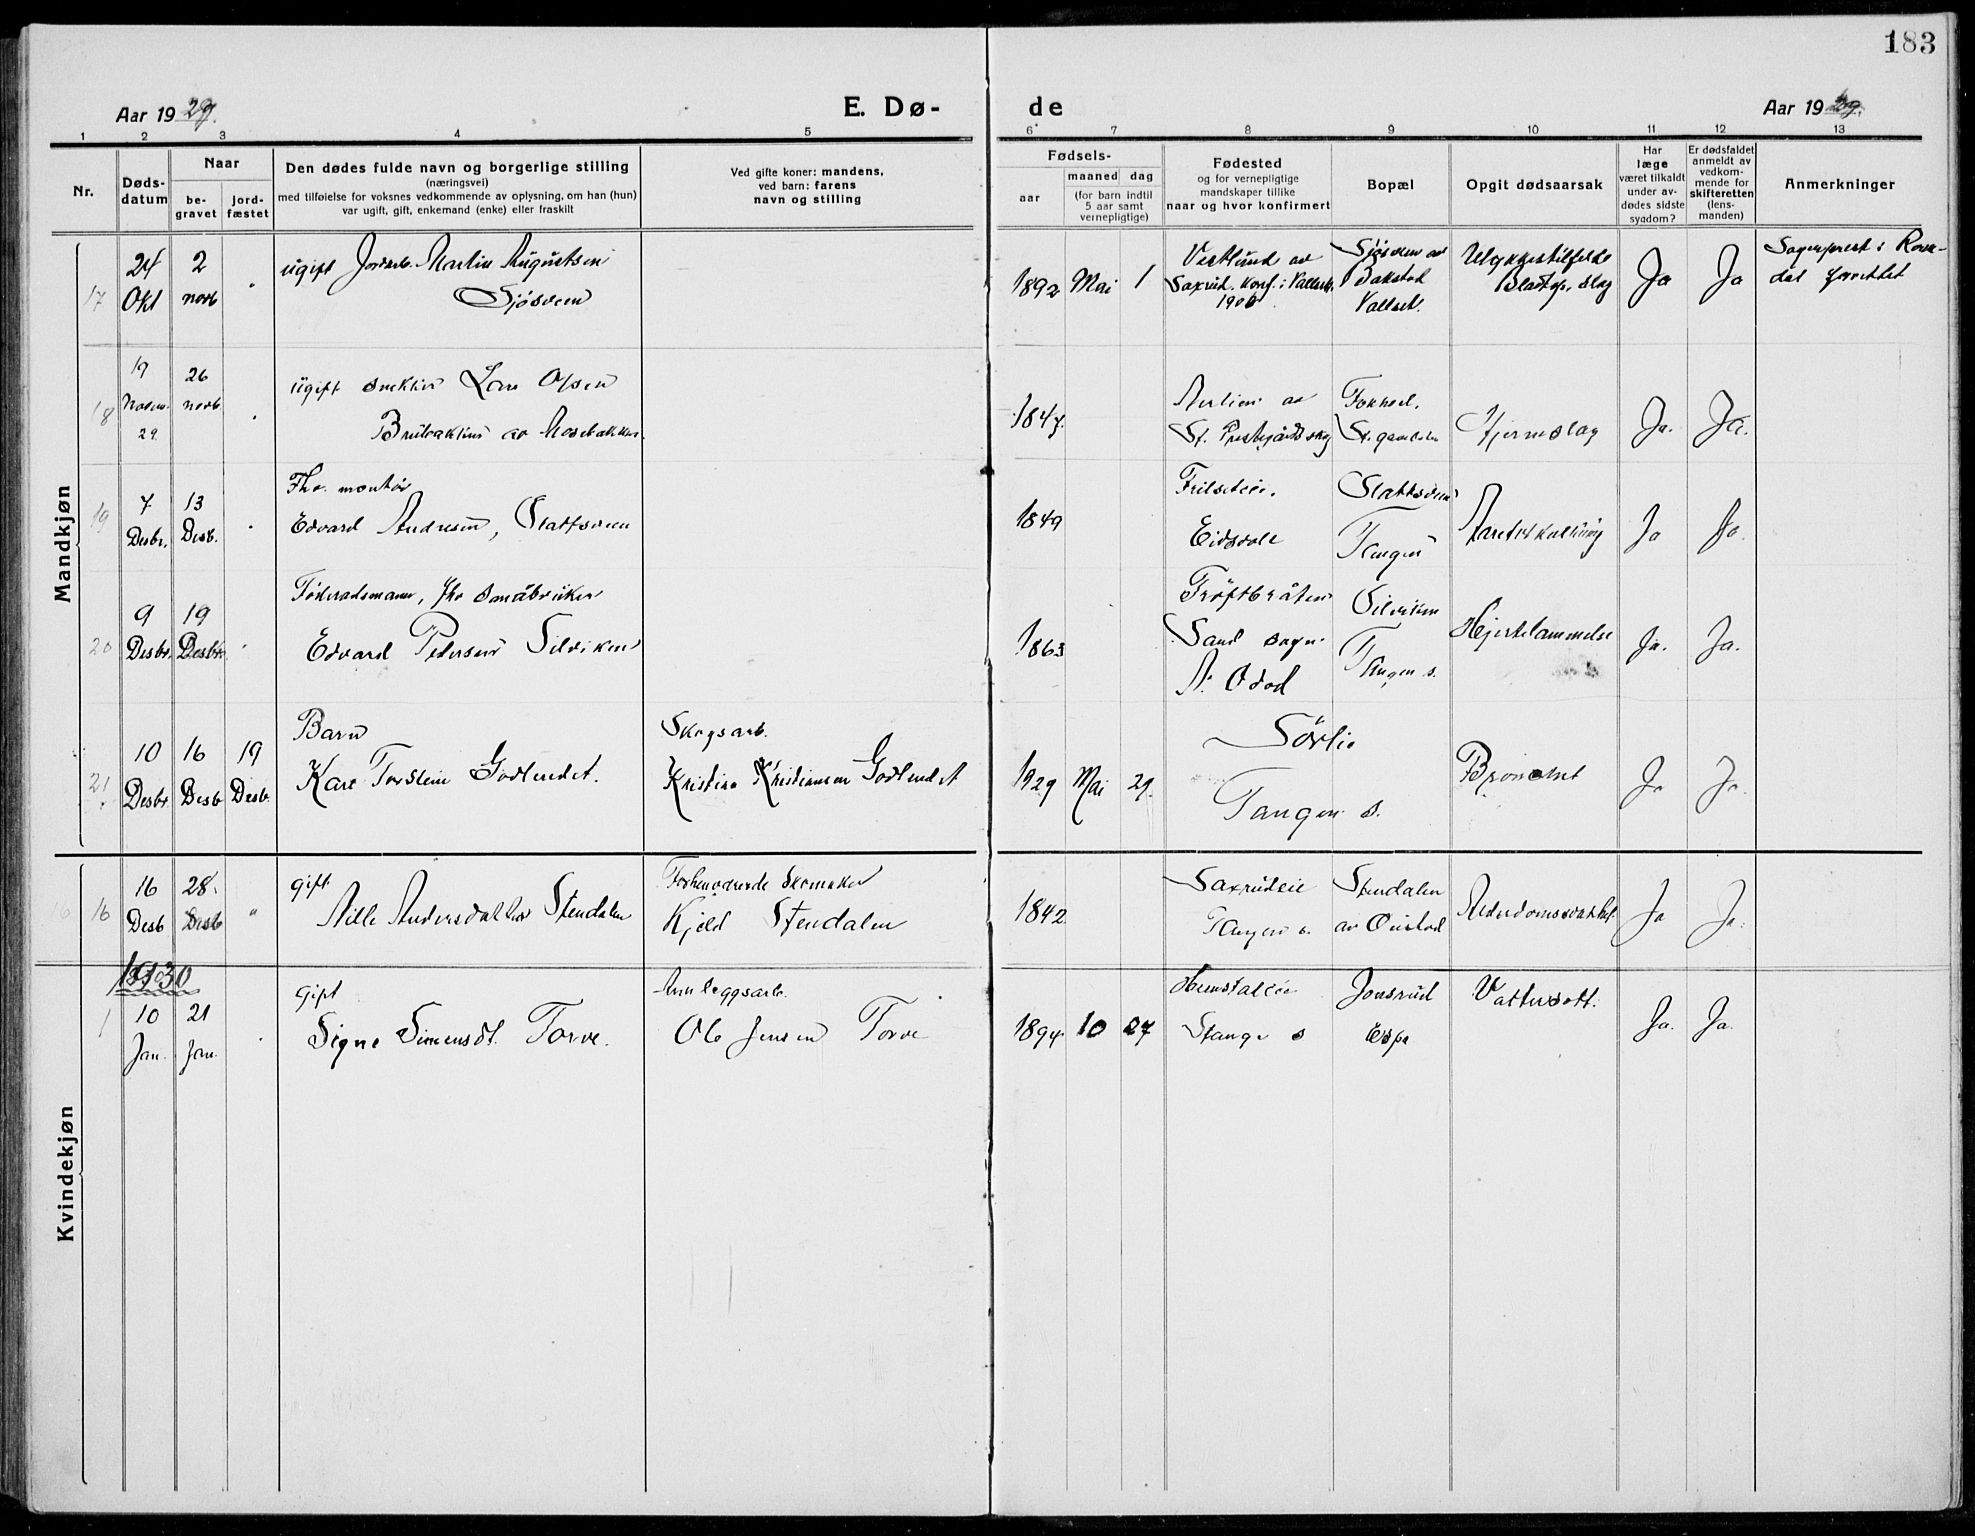 183
Aar 1929.
E. Dø-
de
Aar 1929.
1 2 3 4 5
6 7 8 9 10 11 12 13
Nr.
Døds-
datum
Naar
be-
gravet
jord-
fæstet
Den dødes fulde navn og borgerlige stilling
(næringsvei)
med tilføielse for voksnes vedkommende av oplysning, om han (hun)
var ugift, gift, enkemand (enke) eller fraskilt
Ved gifte koner: mandens,
ved barn: farens
navn og stilling
Fødsels-
aar
maaned dag
(for barn indtil
5 aar samt
vernepligtige)
Fødested
og for vernepligtige
mandskaper tillike
naar og hvor konfirmert
Bopæl
Opgit dødsaarsak
Har
læge
været tilkaldt
under av-
dødes sidste
sygdom?
Er dødsfaldet
anmeldt av
vedkom-
mende for
skifteretten
(lens-
manden)
Anmerkninger
Mandkjøn
17
24
Okt
2
novb
"
ugift Jordarb. Martin Augustsen
Sjøsveen
1892 Mai 1
Vestlund av
Saxrud. Konf. i Vallset.
1906
Sjøsveen av
Bakstad
Vallset.
Ulykkestilfelde
slag
Ja
Ja
Sogneprest i
forrettet
18
19
Novem.
29.
26
novb
"
ugift snekker Lars Olsen
av Mosebakken
1847.
av
St. Prestegårds skog
Fokhol.
Hjerneslag
Ja.
Ja.
19
7
Desbr.
13
Desb.
"
Fhv. montør
Edvard Andresen, Slattsveen
1849
Frilseteie.
Eidsvoll
Slattsveen
Tangen
Ja
Ja.
20
9
Desbr.
19
Desbr.
"
Føderaadsmann, fhv småbruker
Edvard Pedersen Silviken
1863
Trøftbråten
Sand sogn
N. Odal
Silviken
Tangen s.
Hjertelammelse
Ja.
Ja.
21
10
Desbr
16
Desb
19
Desb.
Barn
Kåre Torstein Godlundet.
Skogsarb.
Kristian Kristiansen Godlundet
1929 Mai 29.
Sørlie
Tangen s.
Ja
Ja.
Kvindekjøn
16 16
16
Desb
28.
Desb
"
gift
Nille Andersdatter Stendalen
Forhenværende Skomaker
Kjeld Stendalen
1842
Saxrudeie
Tangen s.
Stendalen
av Oustad
Alderdomssvakhet.
Ja
Ja.
1930
1
10
Jan.
21
Jan.
"
Gift
Signe Simensdt. Torve.
Annleggsarb.
Ole Jensen Torve
1894. 10 27
Hemstadeie
Stange s
Jonsrud
Espa
Vattersott.
Ja.
Ja.